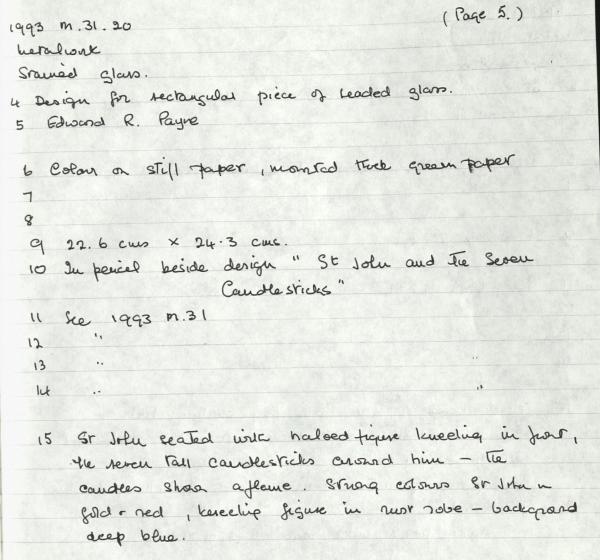 (Page 5.)
1993 m.31.20
Metalwork
Stained glass.
4 Design for rectangular piece of leaded glass.
5 Edward R. Payne
6 Colour on still paper, mounted thick green paper
7
8
9 22.6 cms x 24.3 cms.
10 In pencil beside design " St John and The Seven
Candlesticks"
11 See 1993 m.31
12 "
13 " "
14 " "
15 St John seated with haloed figure kneeling in front,
The seven tall candlesticks around him – The
candles show aflame. Strong colours St John in
gold + red, kneeling figure in rust robe – background
deep blue.